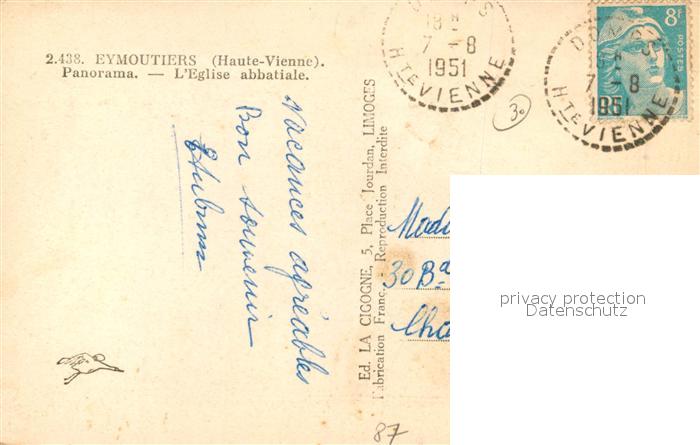 2.438. EYMOUTIERS (Haute-Vienne).
Panorama. — L'Eglise abbatiale.
Vacances agréables
Bon souvenir
Ed. LA CIGOGNE, 5, Place Jourdan, LIMOGES
Fabrication Franc. - Reproduction Interdite
18 H
7 - 8
1951
HTE VIENNE
7 - 8
1951
HTE VIENNE
8F
POSTES
30
Mad
30 Bd
Cha
privacy protection
Datenschutz
87